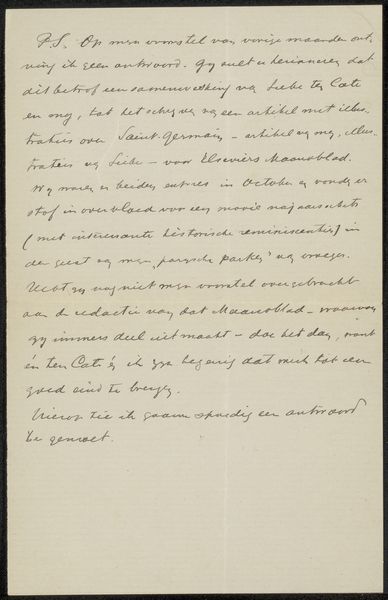 P.S. Op mijn voorstel van vorige maanden ont-
ving ik geen antwoord. Gij zult u herinneren dat
dit betrof een samenwerking van Siebe ten Cate
en mij, tot het schrijven van een artikel met illus-
traties over Saint-Germain – artikel van mij, illus-
traties van Siebe – voor Elseviers Maandblad.
Wij waren er beiden in October en vonden er
stof in overvloed voor een mooie najaarsschets
(met interessante historische reminiscenties) in
den geest van mijn „parijsche parken" van vroeger.
Hebt gij nog niet mijn voorstel overgebracht
aan de redactie van dat Maandblad – waarvan
gij immers deel uitmaakt – doe het dan, want
én ten Cate én ik zijn begeerig dat werk tot een
goed eind te brengen.
Hierop zie ik gaarne spoedig een antwoord
te gemoet.